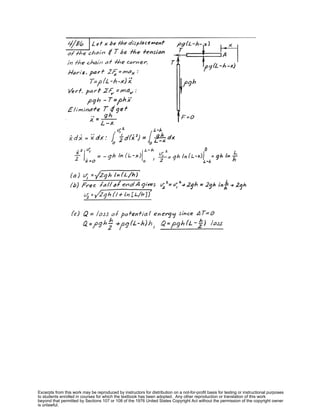 4/86 Let x be the displacement
of the chain & T be the tension
in the chain at the corner.
Horiz. part ΣFx = max:
T = ρ(L-h-x)ẍ
Vert. part ΣF = ma:
ρgh - T = ρhẍ
Eliminate T & get
ẍ = gh/(L-x)
ρg(L-h-x)
x
T
A
T
ρg(L-h-x)
ρgh
F=0
ẋdẋ = ẍdx: ∫₀^v₁ ½d(ẋ²) = ∫₀^L-h gh/(L-x) dx
ẋ²/2 |^v₁ ẋ=0 = -gh ln(L-x)|₀^L-h, v₁²/2 = gh ln(L-x)|⁰ L-h = gh ln L/h
(a) v₁ = √2gh ln(L/h)
(b) Free fall of end A gives v₂² = v₁² + 2gh = 2gh ln L/h + 2gh
v₂ = √2gh(1+ln[L/h])
(c) Q = loss of potential energy since ΔT=0
Q = ρgh h/2 + ρg(L-h)h, Q = ρgh(L - h/2) loss
Excerpts from this work may be reproduced by instructors for distribution on a not-for-profit basis for testing or instructional purposes
to students enrolled in courses for which the textbook has been adopted. Any other reproduction or translation of this work
beyond that permitted by Sections 107 or 108 of the 1976 United States Copyright Act without the permission of the copyright owner
is unlawful.